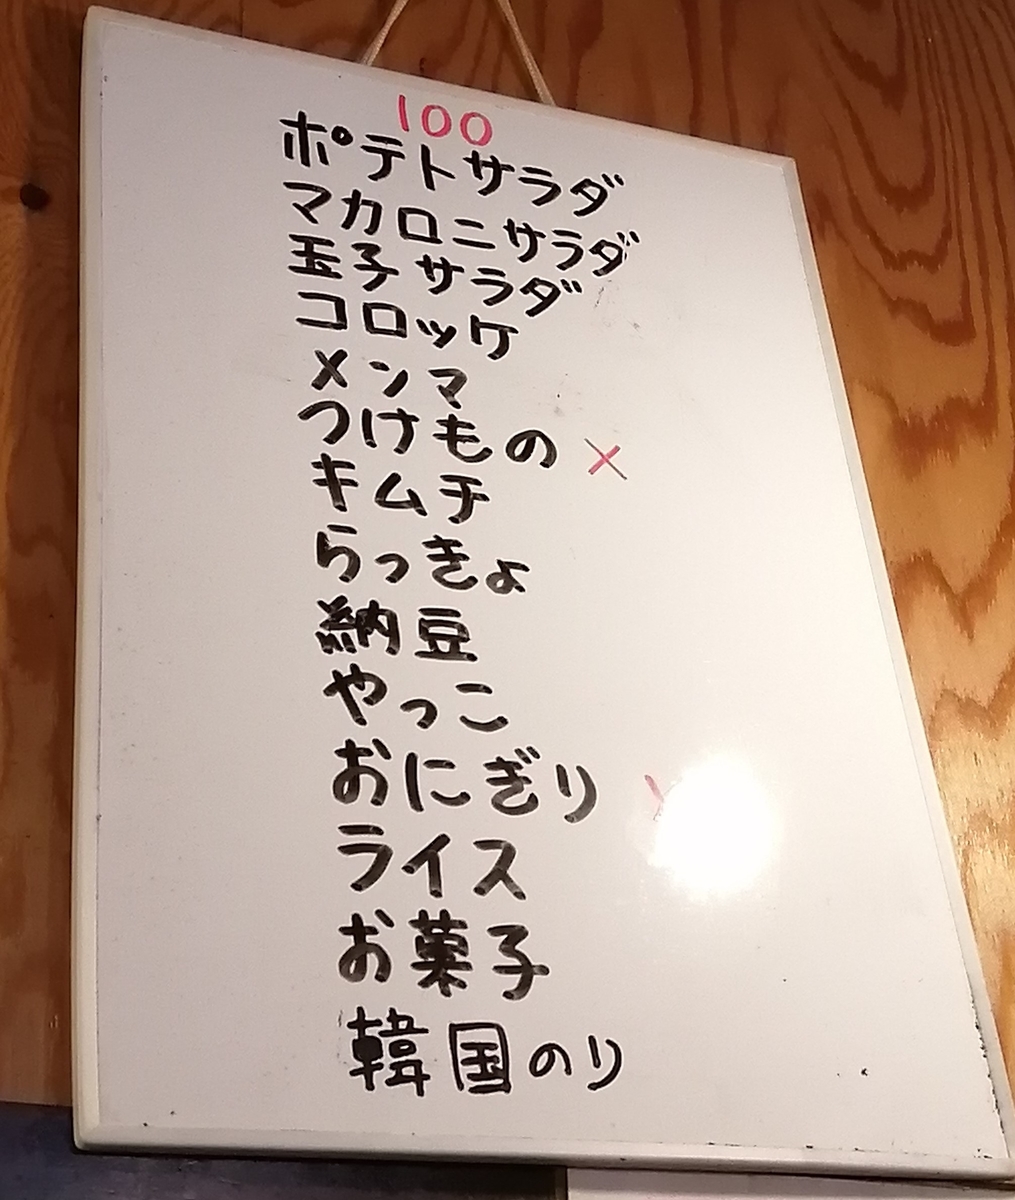 100
ポテトサラダ
マカロニサラダ
玉子サラダ
コロッケ
メンマ
つけもの ×
キムチ
らっきょ
納豆
やっこ
おにぎり
ライス
お菓子
韓国のり